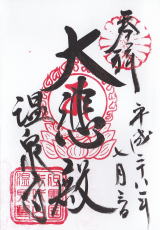 奉拝
平成二十八年
七月三日
大悲殿
温泉寺